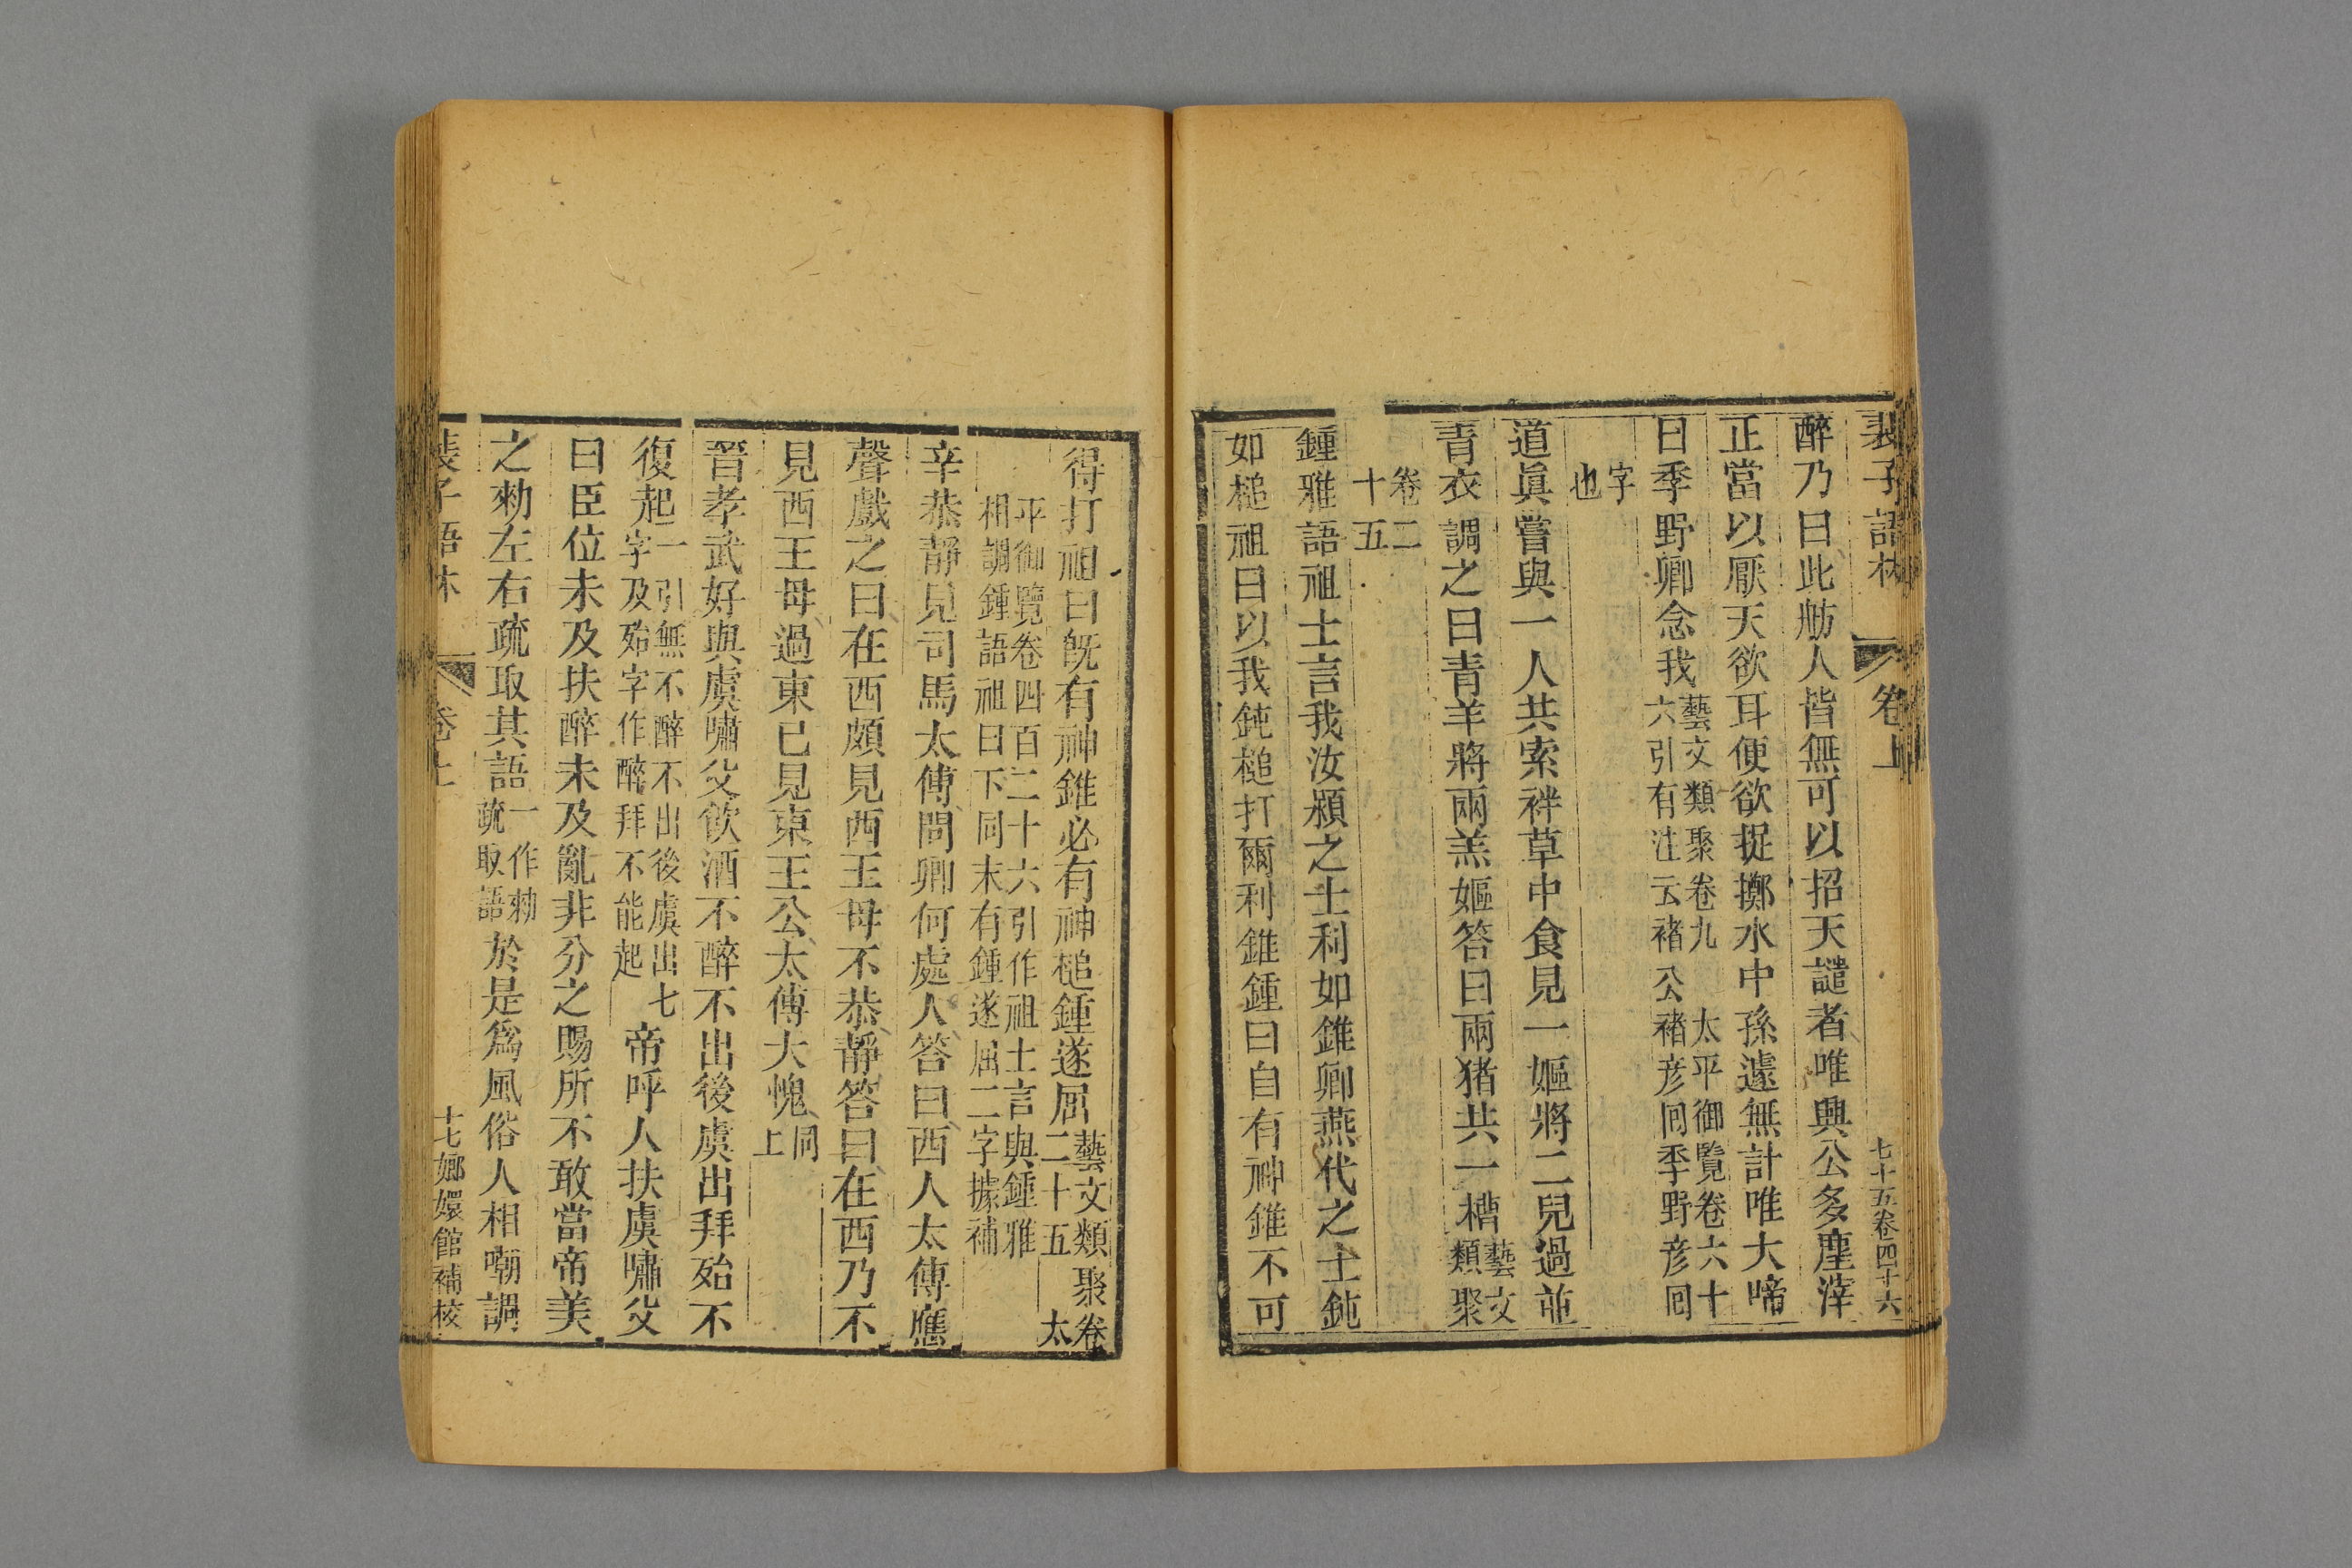 裴子語林　卷上　七十五卷四十六
醉乃曰此舫人皆無可以招天譴者唯興公多塵滓
正當以厭天欲耳便欲捉擲水中孫遽無計唯大啼
曰季野卿念我藝文類聚卷九　太平御覽卷六十六引有注云褚公褚彥囘季野彥囘
字也
道眞嘗與一人共索袢草中食見一嫗將二兒過並
青衣調之曰青羊將兩羔嫗答曰兩猪共一槽藝文類聚
卷二十五
鍾雅語祖士言我汝潁之士利如錐卿燕代之士鈍
如槌祖曰以我鈍槌打爾利錐鍾曰自有神錐不可
得打祖曰旣有神錐必有神槌鍾遂屈藝文類聚卷二十五　太
平御覽卷四百二十六引作祖士言與鍾雅相調鍾語祖曰下同末有鍾遂屈二字據補
辛恭靜見司馬太傅問卿何處人答曰西人太傅應
聲戲之曰在西頗見西王母不恭靜答曰在西乃不
見西王母過東已見東王公太傅大愧同上
晉孝武好與虞嘯父飮酒不醉不出後虞出拜殆不
復起一引無不醉不出後虞出七字及殆字作醉拜不能起帝呼人扶虞嘯父
曰臣位未及扶醉未及亂非分之賜所不敢當帝美
之勑左右疏取其語一作勑疏取語於是爲風俗人相嘲調
裴子語林　卷上　十七嫏嬛館補校